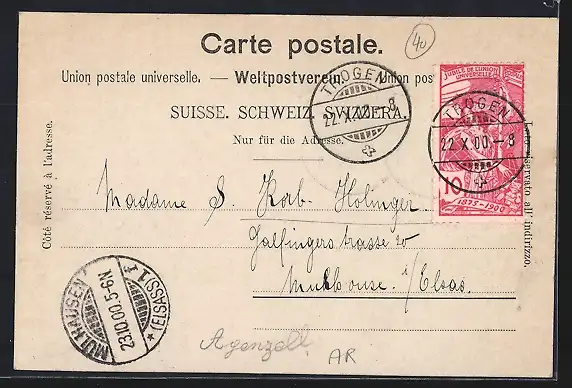 40
Carte postale.
Union postale universelle. — Weltpostverein. Union pos
SUISSE. SCHWEIZ. SVIZZERA.
Nur für die Adresse.
Côté réservé à l'adresse.
TROGEN
22.X.00.-8
JUBILÉ DE L'UNION
UNIVERSELLE
10
1875-1900
TROGEN
22.X.00.-8
o riservato all' indirizzo.
Madame S. Kob-Holinger
Galfingerstrasse 20
Mulhouse i/Elsas.
MÜLHAUSEN
23.10.00.5-6N.
*(ELSASS) 1
Apenzell
AR